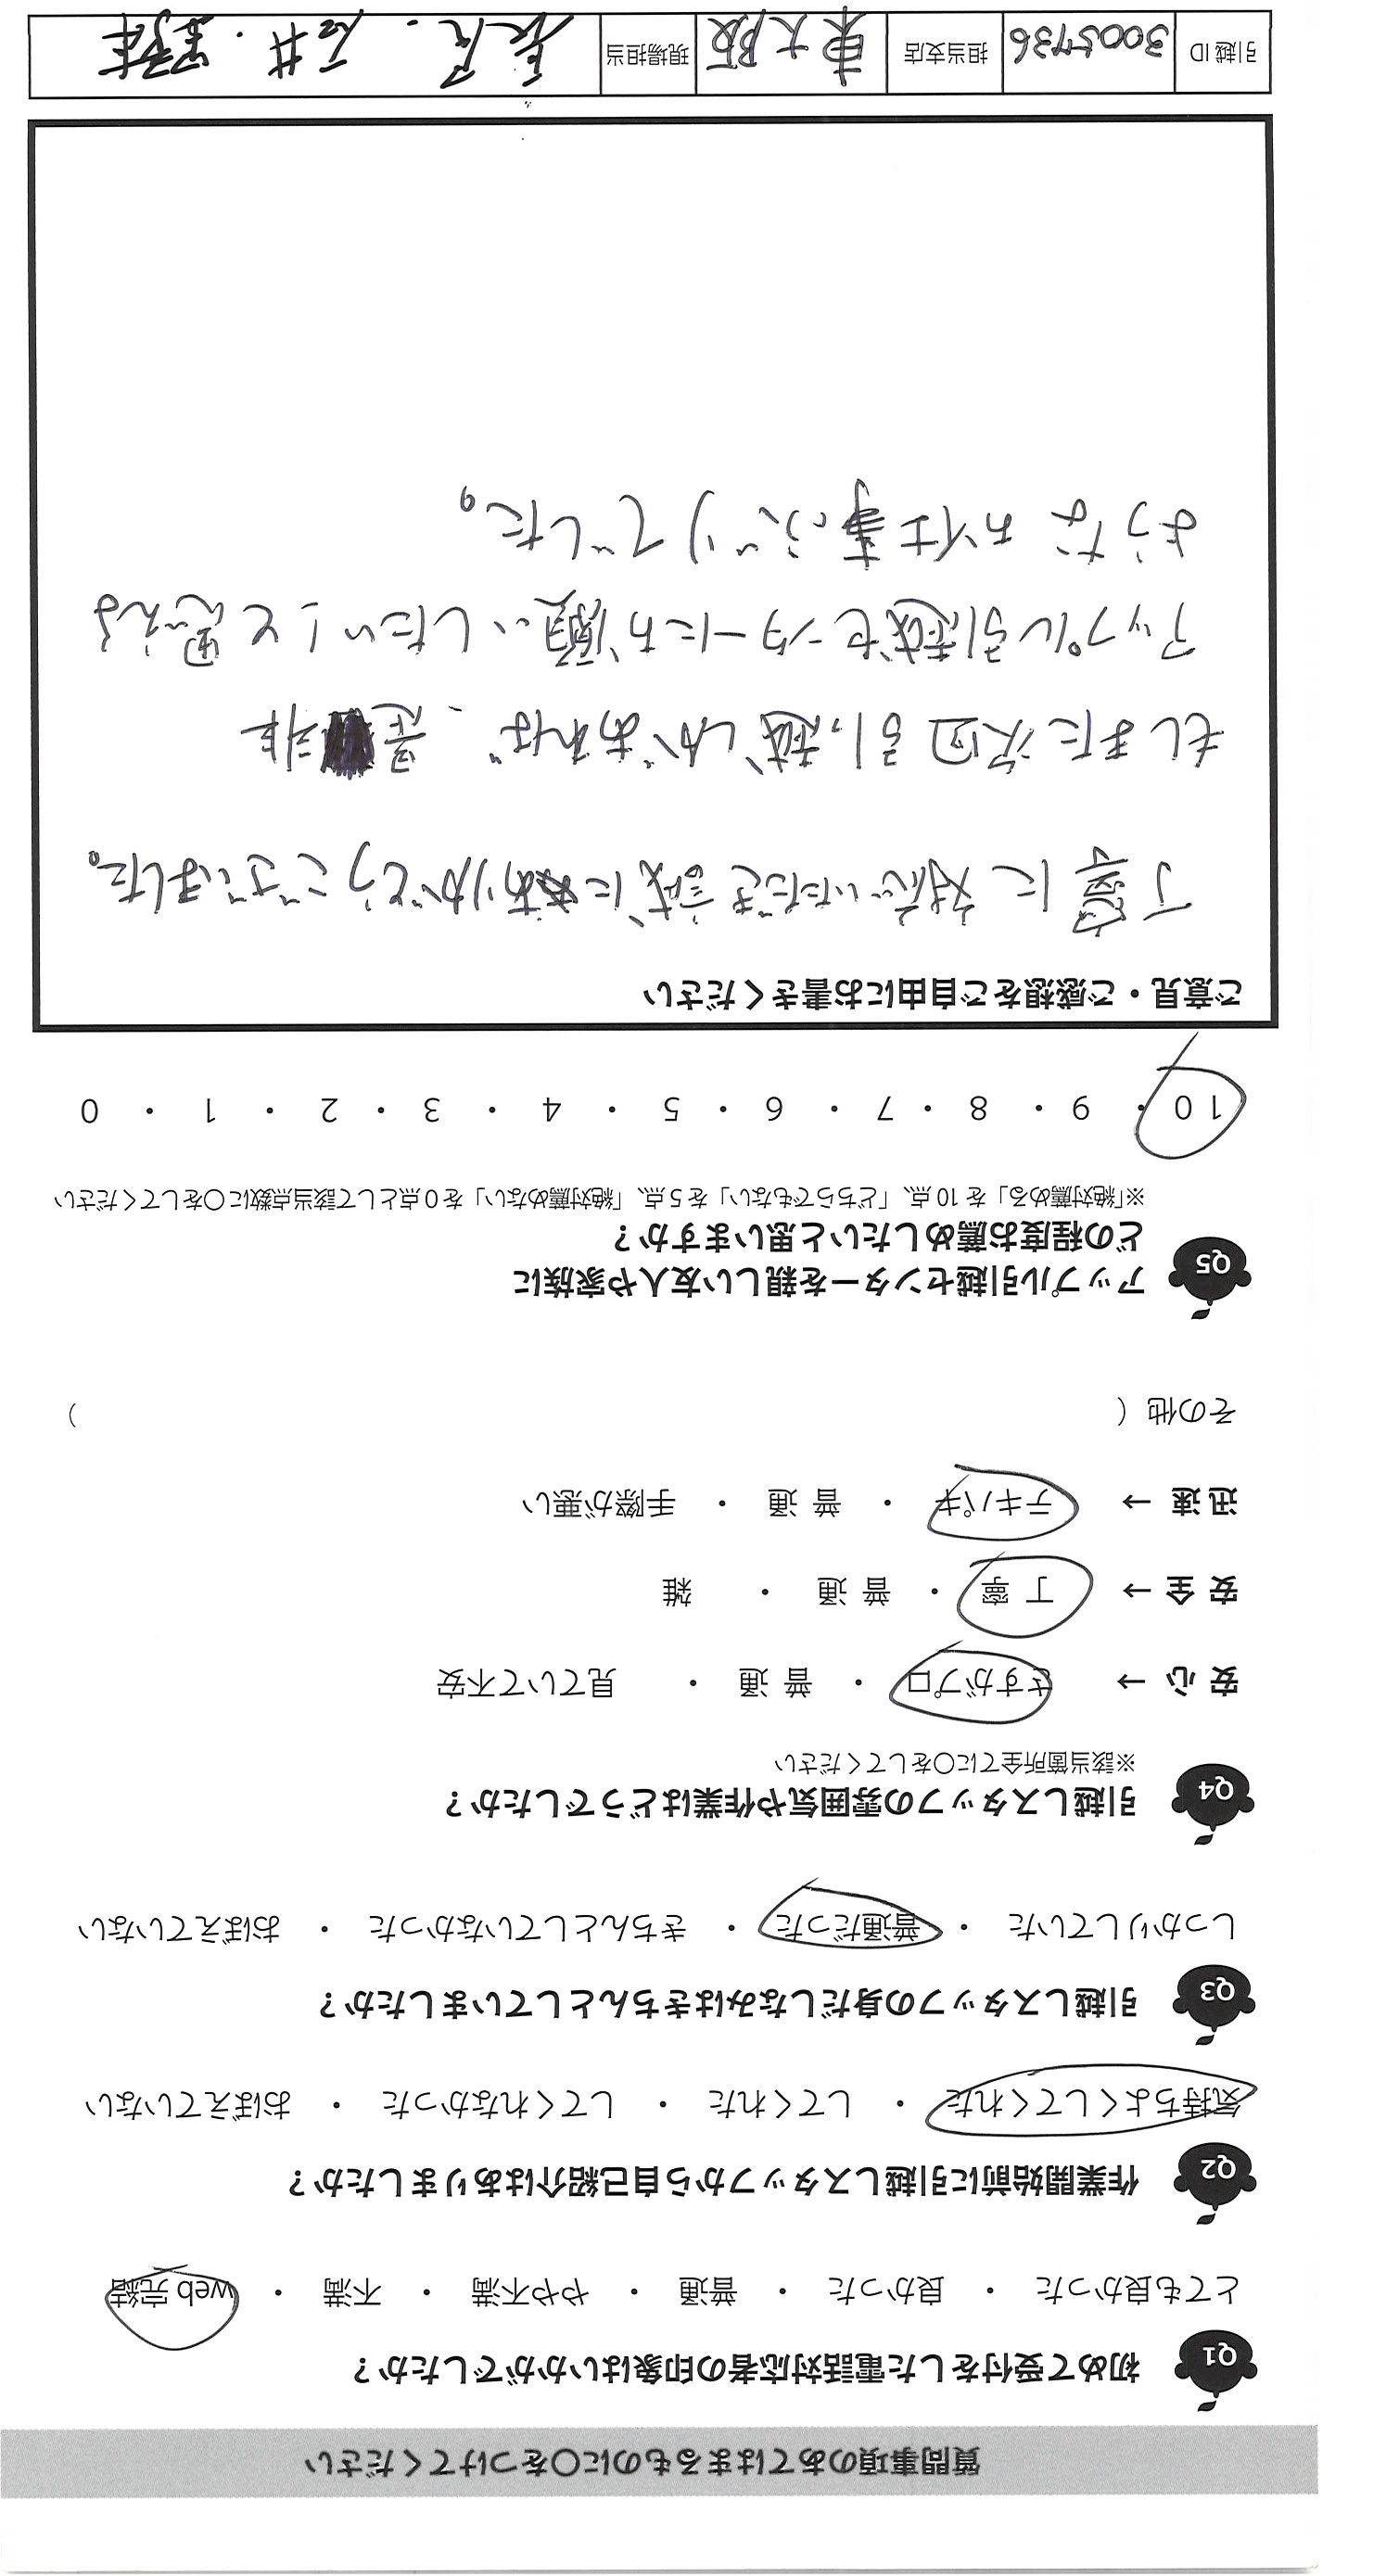 質問事項のあてはまるものに〇をつけてください
Q1 初めて受付をした電話対応者の印象はいかがでしたか？
とても良かった ・ 良かった ・ 普通 ・ やや不満 ・ 不満 ・ web 完結
Q2 作業開始前に引越しスタッフから自己紹介はありましたか？
気持ちよくしてくれた ・ してくれた ・ してくれなかった ・ おぼえていない
Q3 引越しスタッフの身だしなみはきちんとしていましたか？
しっかりしていた ・ 普通だった ・ きちんとしていなかった ・ おぼえていない
Q4 引越しスタッフの雰囲気や作業はどうでしたか？
※該当箇所全てに〇をしてください
安 心 → さすがプロ ・ 普 通 ・ 見ていて不安
安 全 → 丁 寧 ・ 普 通 ・ 雑
迅 速 → テキパキ ・ 普 通 ・ 手際が悪い
その他（ ）
Q5 アップル引越センターを親しい友人や家族に
どの程度お薦めしたいと思いますか？
※「絶対薦める」を 10 点、「どちらでもない」を 5 点、「絶対薦めない」を 0 点として該当点数に〇をしてください
10 ・ 9 ・ 8 ・ 7 ・ 6 ・ 5 ・ 4 ・ 3 ・ 2 ・ 1 ・ 0
ご意見・ご感想をご自由にお書きください
丁寧に対応いただき誠にありがとうございました。
もしまた次回引っ越しがあれば、是非
アップル引越センターにお願いしたい！と思える
ような お仕事っぷりでした。
引越 ID 3005736 担当支店 東大阪 現場担当 ・石井・